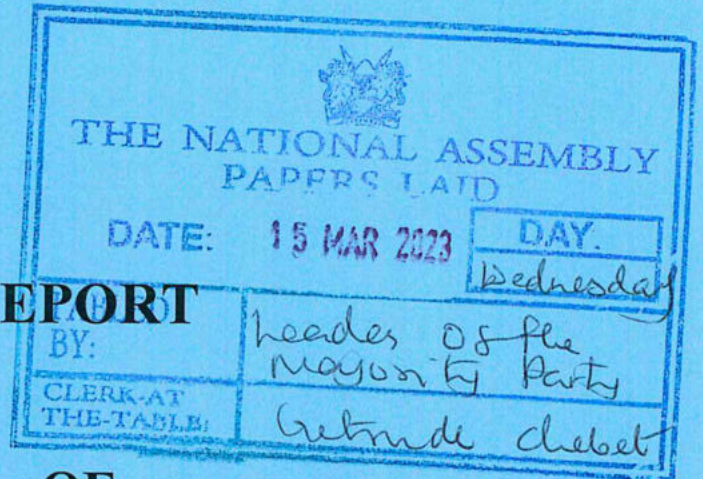 THE NATIONAL ASSEMBLY
PAPERS LAID
DATE: 15 MAR 2023 DAY.
Wednesday
EPORT
BY: Leader of the
Majority Party
CLERK-AT
THE-TABLE: Getrude Chebet
OF